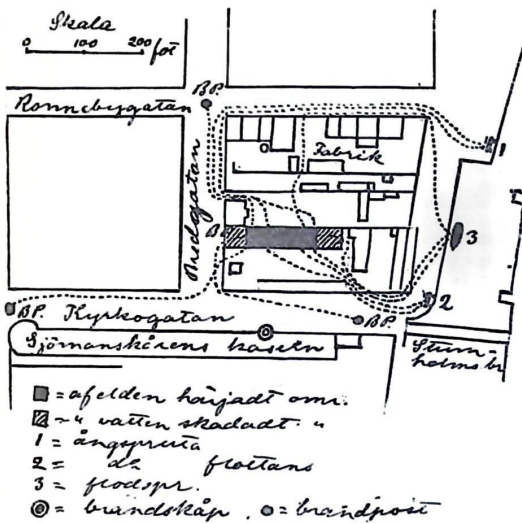 Skala
0 100 200 fot
Ronnebygatan
BP.
Bredgatan
Fabrik
1
B.
3
2
BP. Kyrkogatan
BP.
Sjömanskårens kasern
Stum-
holms br
= afelden härjadt omr.
= " vatten skadadt "
1 = ångspruta
2 = do flottans
3 = flodspr.
= brandskåp. = brandpost